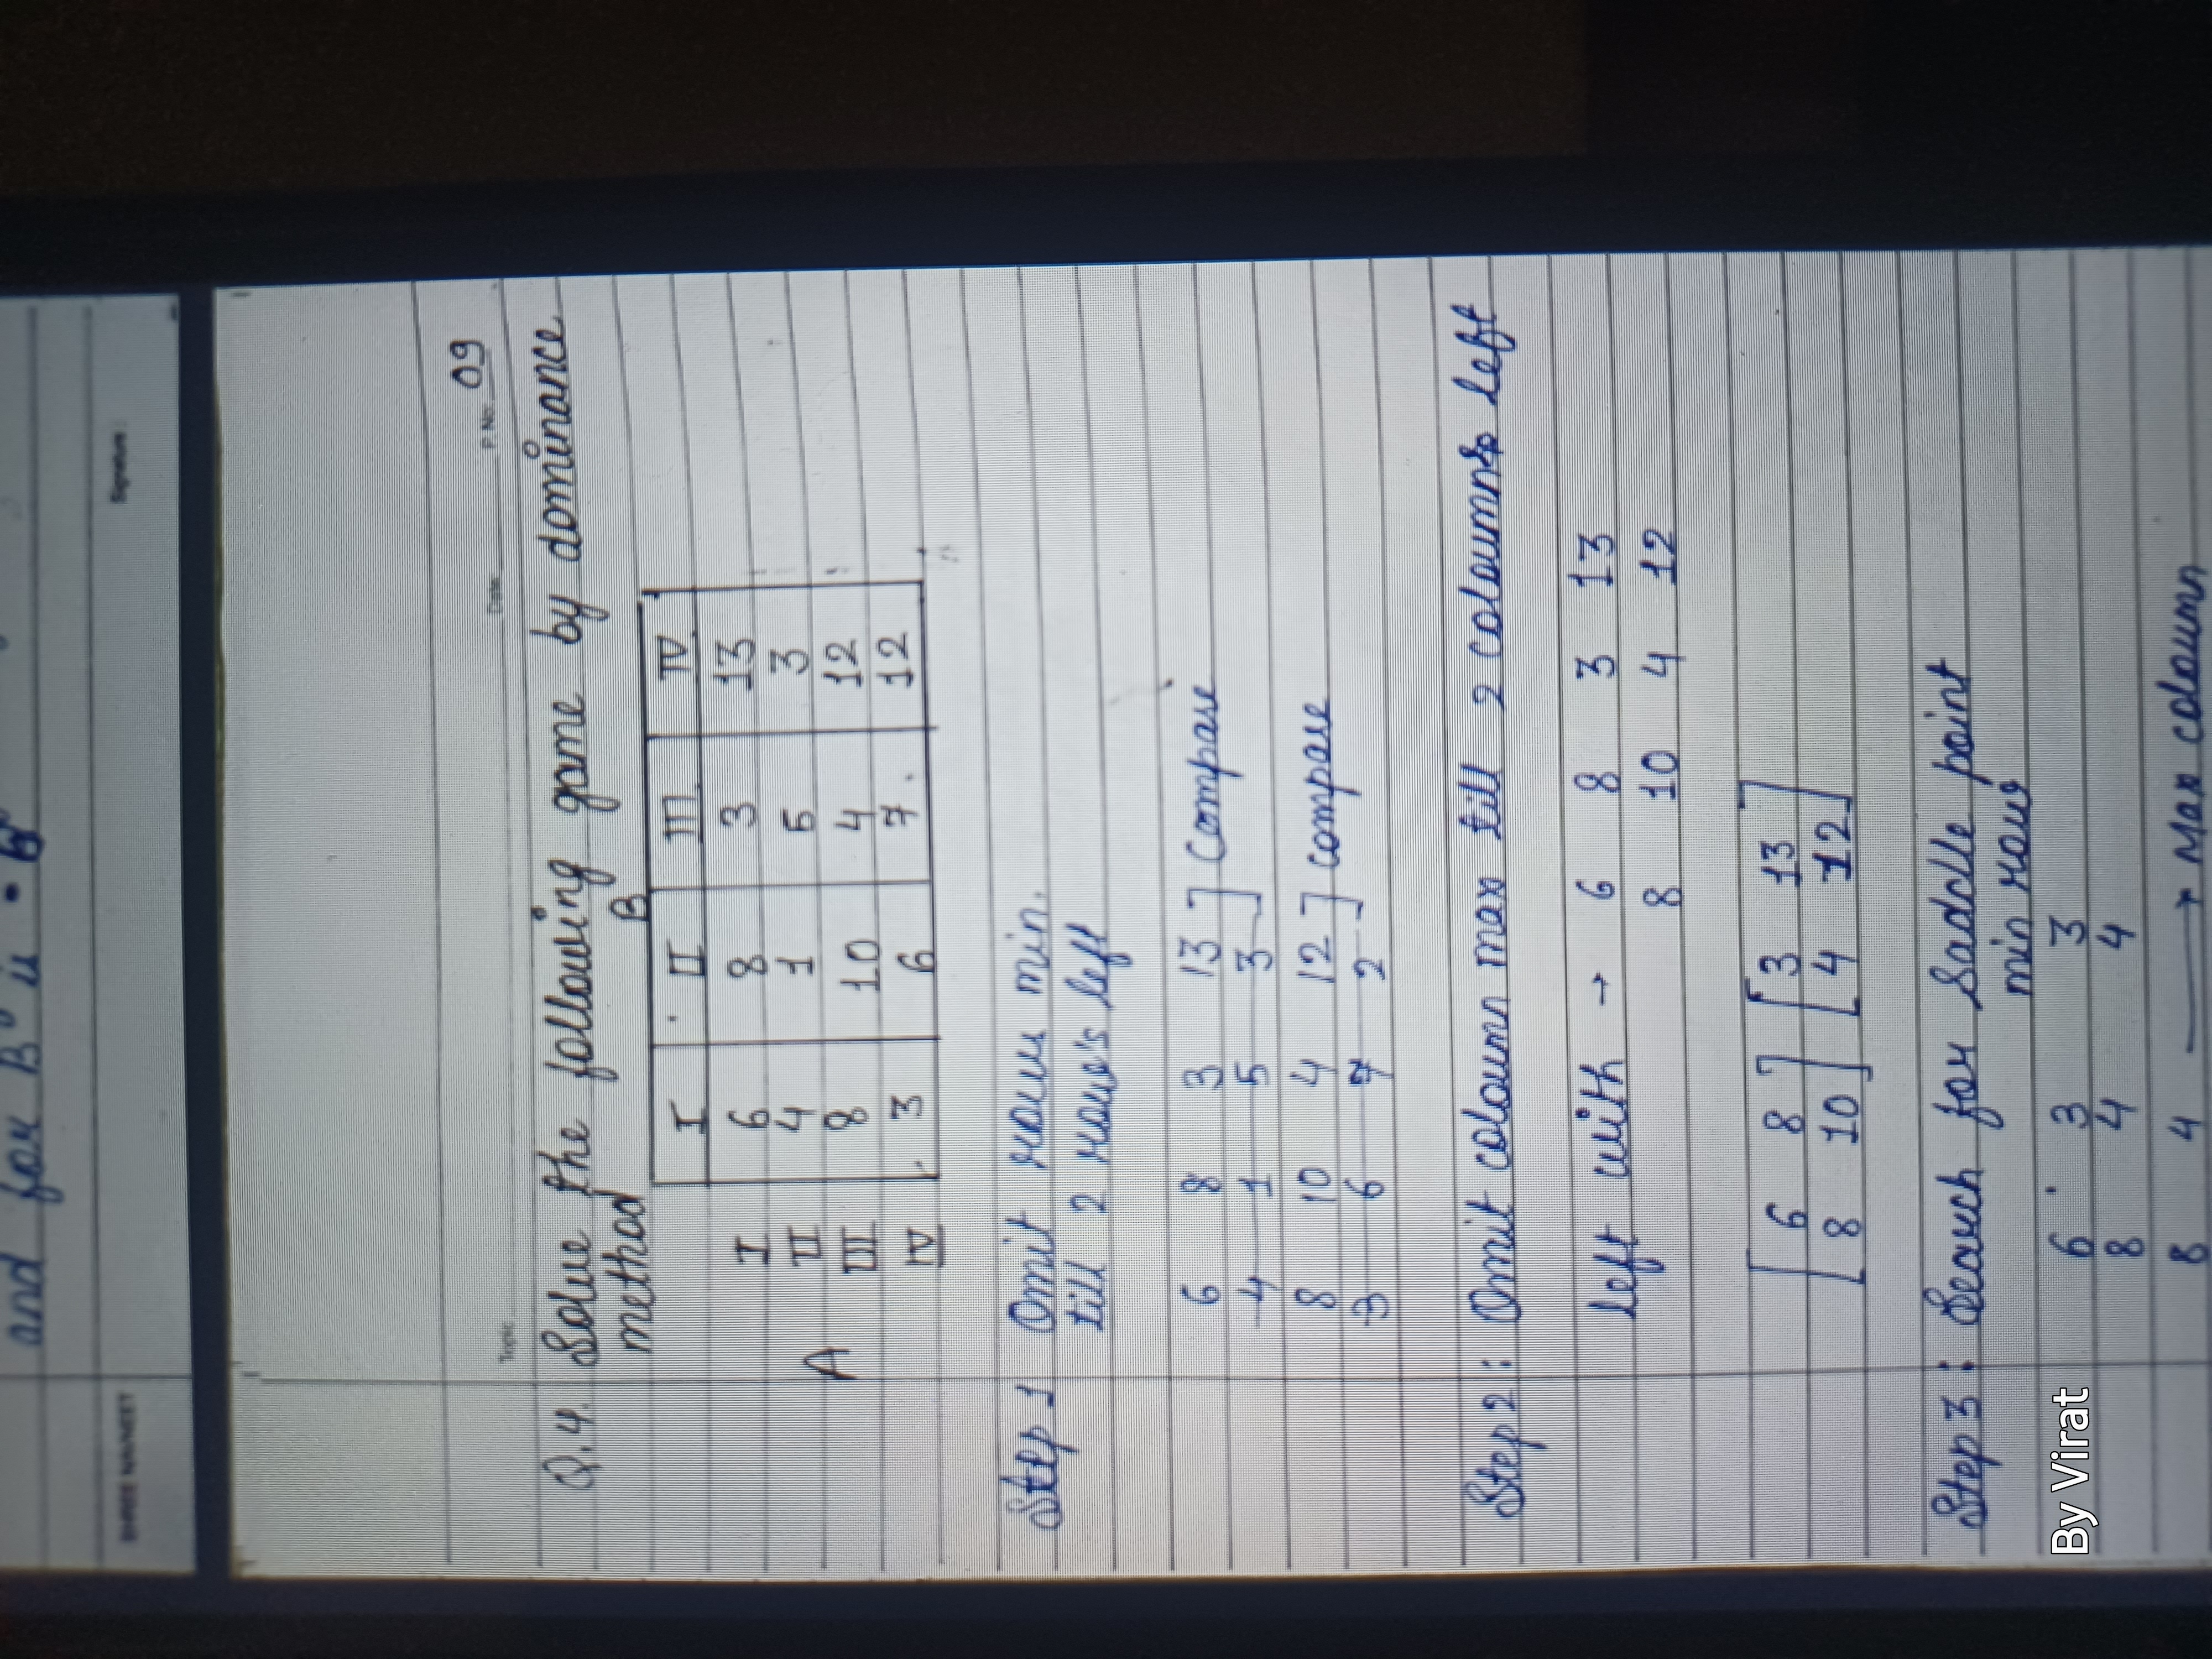 and for B is
SHREE NAVNEET
Signature :
Topic Date P. No. 09
Q.4. Solve the following game by dominance
method
B
I II III IV
I 6 8 3 13
A II 4 1 5 3
III 8 10 4 12
IV 3 6 7 12
Step 1 Omit rows min.
till 2 rows's left
6 8 3 13 ] Compare
4 1 5 3
8 10 4 12 ] compare
3 6 7 2
Step 2 : Omit coloumn max till 2 coloumns left
left with → 6 8 3 13
8 10 4 12
[ 6 8 ] [ 3 13 ]
[ 8 10 ] [ 4 12 ]
Step 3 : Search for Saddle point
min rows
6 3 3
8 4 4
8 4 → Max coloumn
By Virat